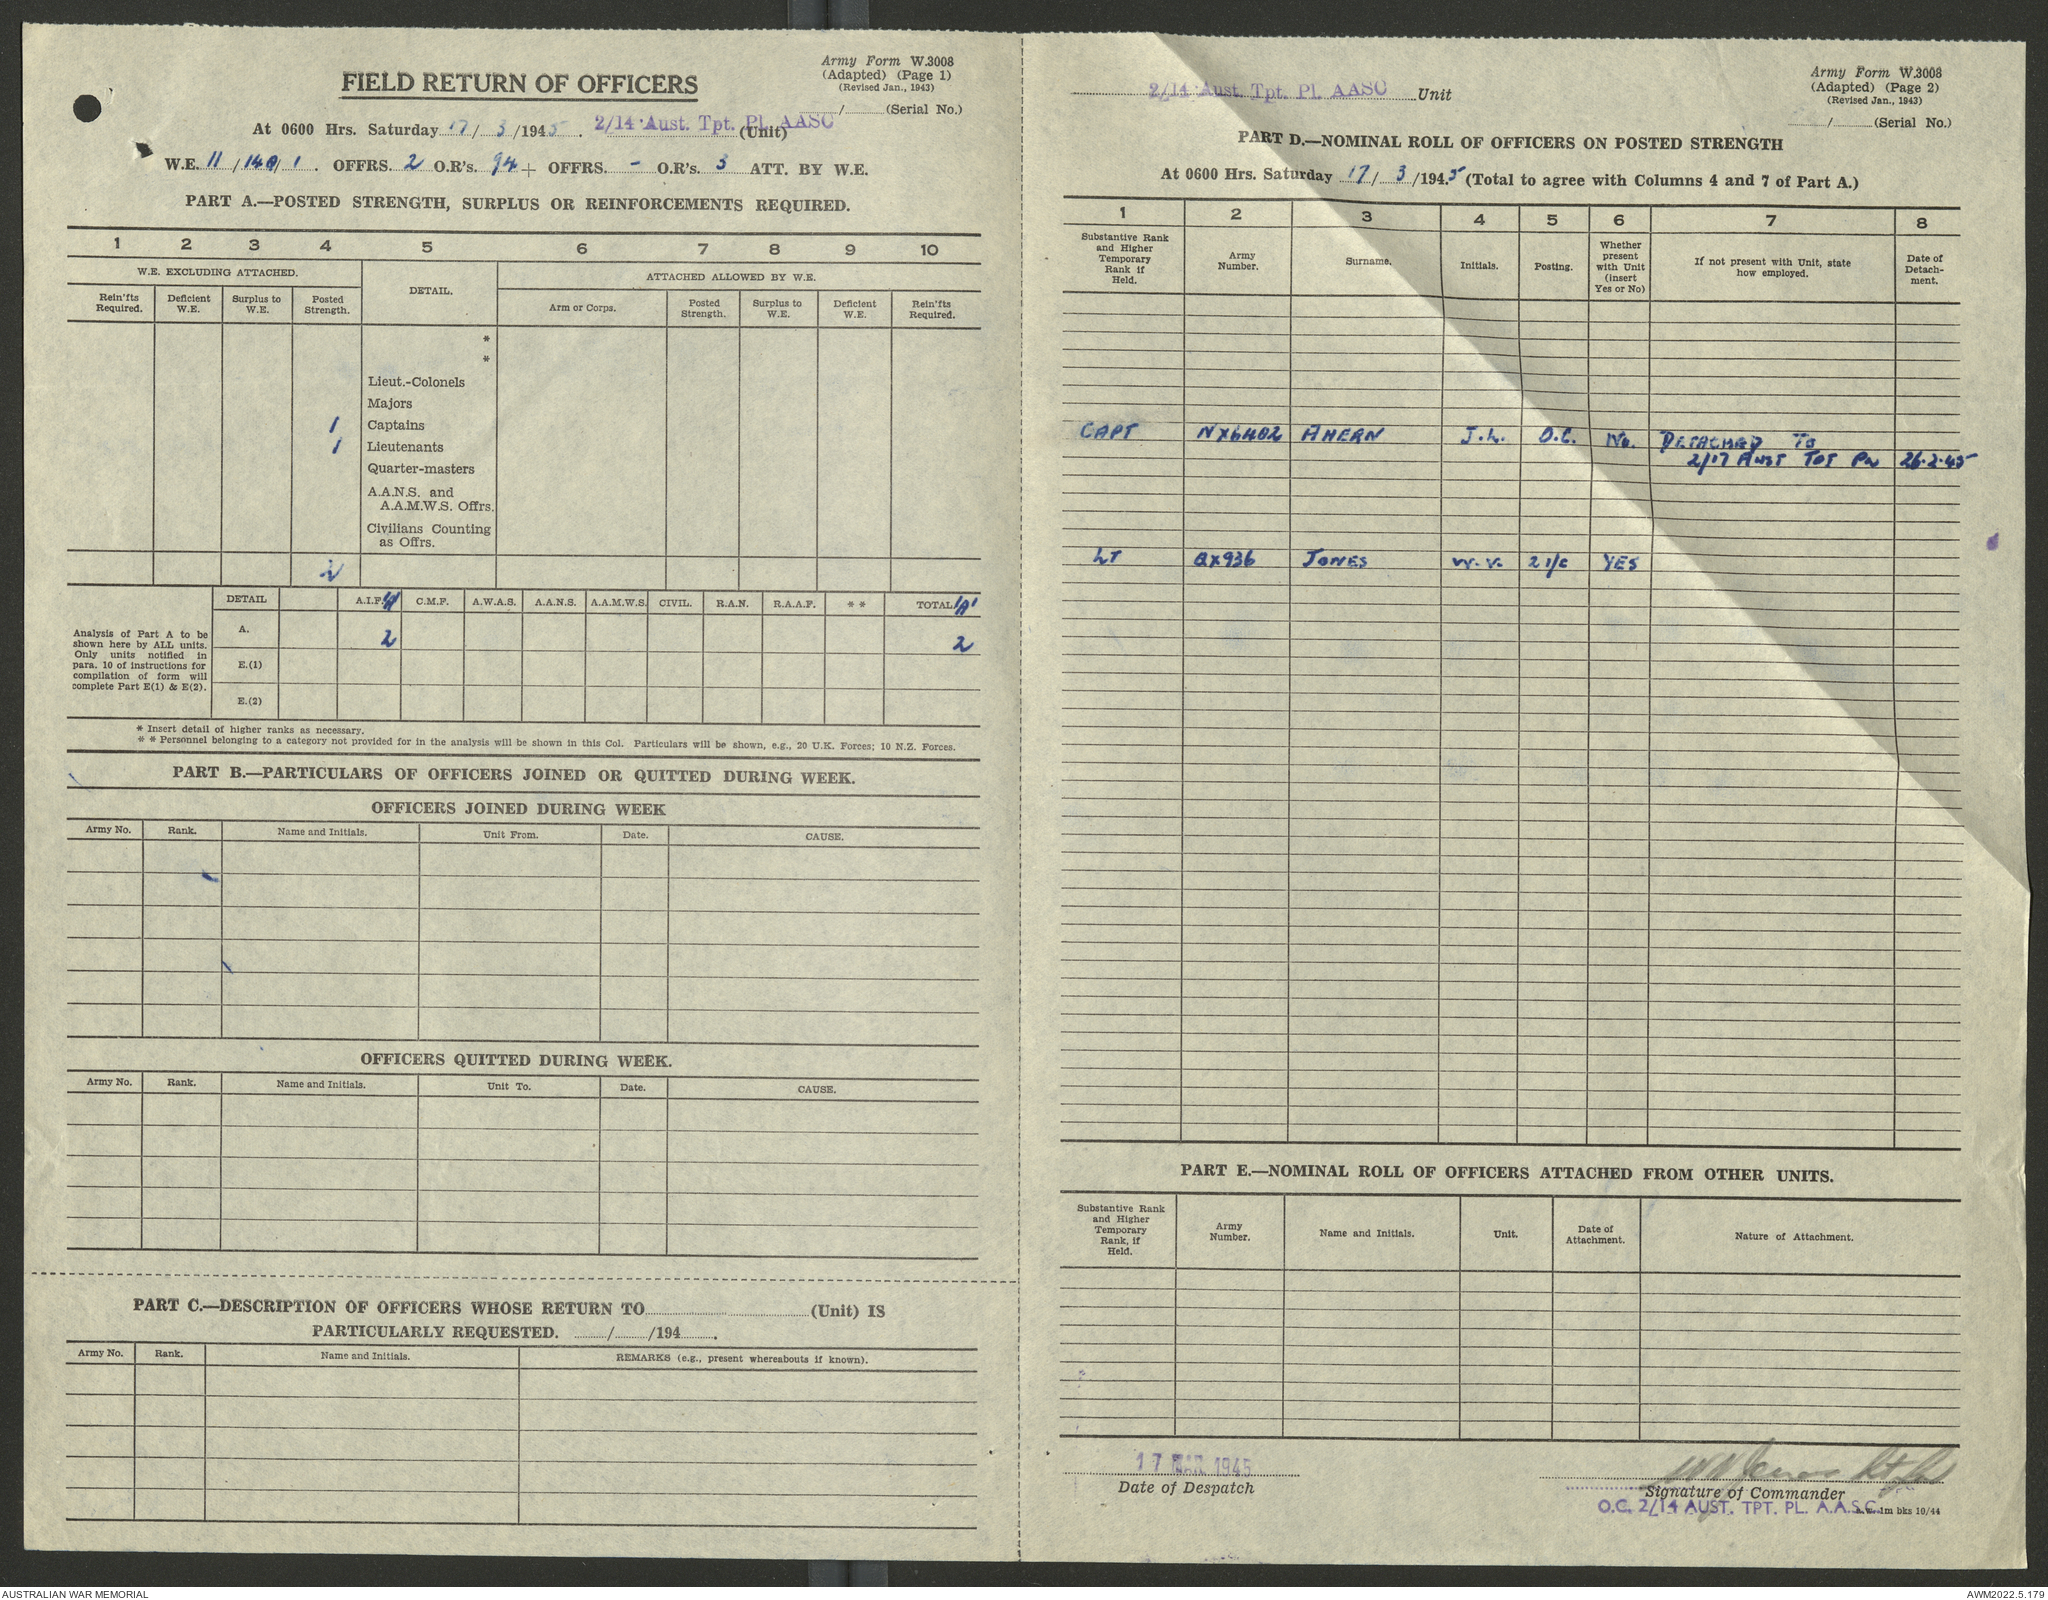 Army Form W.3008
(Adapted) (Page 1)
(Revised Jan., 1943)
FIELD RETURN OF OFFICERS
/ (Serial No.)
At 0600 Hrs. Saturday 17/ 3 /1945. 2/14 Aust. Tpt. Pl. AASC (Unit)
W.E. 11 /140/ 1 . OFFRS. 2 O.R's. 94 + OFFRS. - O.R's. 3 ATT. BY W.E.
PART A.—POSTED STRENGTH, SURPLUS OR REINFORCEMENTS REQUIRED.
1 2 3 4 5 6 7 8 9 10
W.E. EXCLUDING ATTACHED. DETAIL. ATTACHED ALLOWED BY W.E.
Rein'fts Required. Deficient W.E. Surplus to W.E. Posted Strength. Arm or Corps. Posted Strength. Surplus to W.E. Deficient W.E. Rein'fts Required.
*
*
Lieut.-Colonels
Majors
1 Captains
1 Lieutenants
Quarter-masters
A.A.N.S. and
A.A.M.W.S. Offrs.
Civilians Counting
as Offrs.
2
DETAIL A.I.F. 'A' C.M.F. A.W.A.S. A.A.N.S. A.A.M.W.S. CIVIL. R.A.N. R.A.A.F. * * TOTAL 'A'
A. 2 2
E.(1)
E.(2)
Analysis of Part A to be
shown here by ALL units.
Only units notified in
para. 10 of instructions for
compilation of form will
complete Part E(1) & E(2).
* Insert detail of higher ranks as necessary.
* * Personnel belonging to a category not provided for in the analysis will be shown in this Col. Particulars will be shown, e.g., 20 U.K. Forces; 10 N.Z. Forces.
PART B.—PARTICULARS OF OFFICERS JOINED OR QUITTED DURING WEEK.
OFFICERS JOINED DURING WEEK
Army No. Rank. Name and Initials. Unit From. Date. CAUSE.
OFFICERS QUITTED DURING WEEK.
Army No. Rank. Name and Initials. Unit To. Date. CAUSE.
PART C.—DESCRIPTION OF OFFICERS WHOSE RETURN TO (Unit) IS
PARTICULARLY REQUESTED. / /194 .
Army No. Rank. Name and Initials. REMARKS (e.g., present whereabouts if known).
Army Form W.3008
(Adapted) (Page 2)
(Revised Jan., 1943)
2/14 Aust. Tpt. Pl. AASC Unit
/ (Serial No.)
PART D.—NOMINAL ROLL OF OFFICERS ON POSTED STRENGTH
At 0600 Hrs. Saturday 17/ 3 /1945 (Total to agree with Columns 4 and 7 of Part A.)
1 2 3 4 5 6 7 8
Substantive Rank and Higher Temporary Rank if Held. Army Number. Surname. Initials. Posting. Whether present with Unit (insert Yes or No) If not present with Unit, state how employed. Date of Detachment.
CAPT NX6402 AHERN J.L. O.C. No. DETACHED TO
2/17 AUST TPT PL 26.2.45
LT QX936 JONES W.V. 2 i/c YES
PART E.—NOMINAL ROLL OF OFFICERS ATTACHED FROM OTHER UNITS.
Substantive Rank and Higher Temporary Rank, if Held. Army Number. Name and Initials. Unit. Date of Attachment. Nature of Attachment.
17 MAR 1945
Date of Despatch
Signature of Commander
O.C. 2/14 AUST. TPT. PL. A.A.S.C.
1m bks 10/44
AUSTRALIAN WAR MEMORIAL
AWM2022.5.179